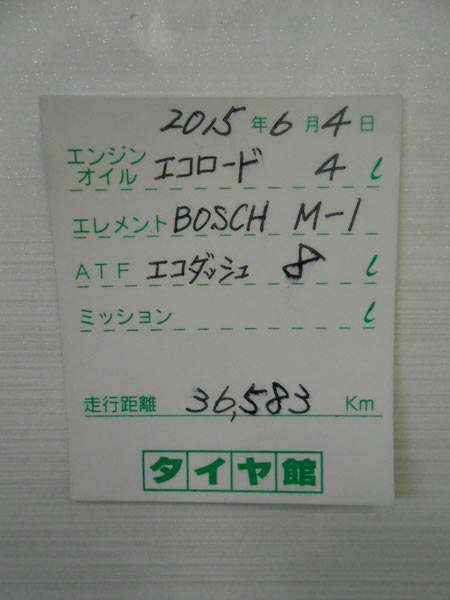 2015年6月4日
エンジンオイル エコロード 4 ℓ
エレメント BOSCH M-1
ATF エコダッシュ 8 ℓ
ミッション ℓ
走行距離 36,583 Km
タイヤ館